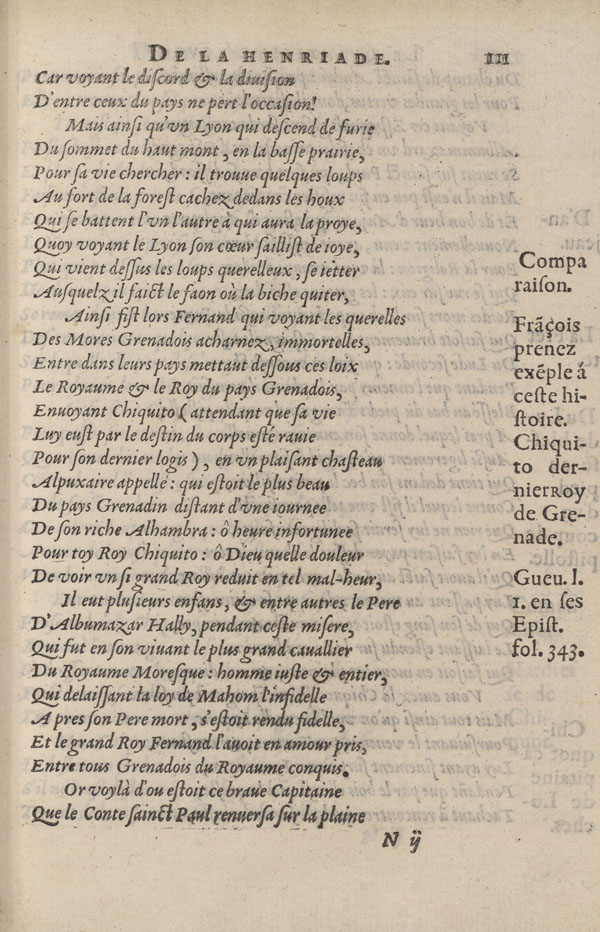 DE LA HENRIADE. III
Car voyant le discord & la diuision
D'entre ceux du pays ne pert l'occasion!
Mais ainsi qu'vn Lyon qui descend de furie
Du sommet du haut mont, en la basse prairie,
Pour sa vie chercher : il trouue quelques loups
Au fort de la forest cachez dedans les houx
Qui se battent l'vn l'autre à qui aura la proye,
Quoy voyant le Lyon son cœur saillist de ioye,
Qui vient dessus les loups querelleux, se ietter
Ausquelz il faict le faon où la biche quiter,
Ainsi fist lors Fernand qui voyant les querelles
Des Mores Grenadois acharnez, immortelles,
Entre dans leurs pays mettaut dessous ces loix
Le Royaume & le Roy du pays Grenadois,
Enuoyant Chiquito (attendant que sa vie
Luy eust par le destin du corps esté rauie
Pour son dernier logis), en vn plaisant chasteau
Alpuxaire appelle : qui estoit le plus beau
Du pays Grenadin distant d'vne iournee
De son riche Alhambra : ô heure infortunee
Pour toy Roy Chiquito : ô Dieu quelle douleur
De voir vn si grand Roy reduit en tel mal-heur,
Il eut plusieurs enfans, & entre autres le Pere
D'Albumazar Hally, pendant ceste misere,
Qui fut en son viuant le plus grand cauallier
Du Royaume Moresque : homme iuste & entier,
Qui delaissant la loy de Mahom l'infidelle
A pres son Pere mort, s'estoit rendu fidelle,
Et le grand Roy Fernand l'auoit en amour pris,
Entre tous Grenadois du Royaume conquis.
Or voylà d'ou estoit ce braue Capitaine
Que le Conte sainct Paul renuersa sur la plaine
N ij
Compa
raison.
Frãçois
prenez
exẽple á
ceste hi-
stoire.
Chiqui-
to der-
nier Roy
de Gre-
nade.
Gueu. l.
1. en ses
Epist.
fol. 343.